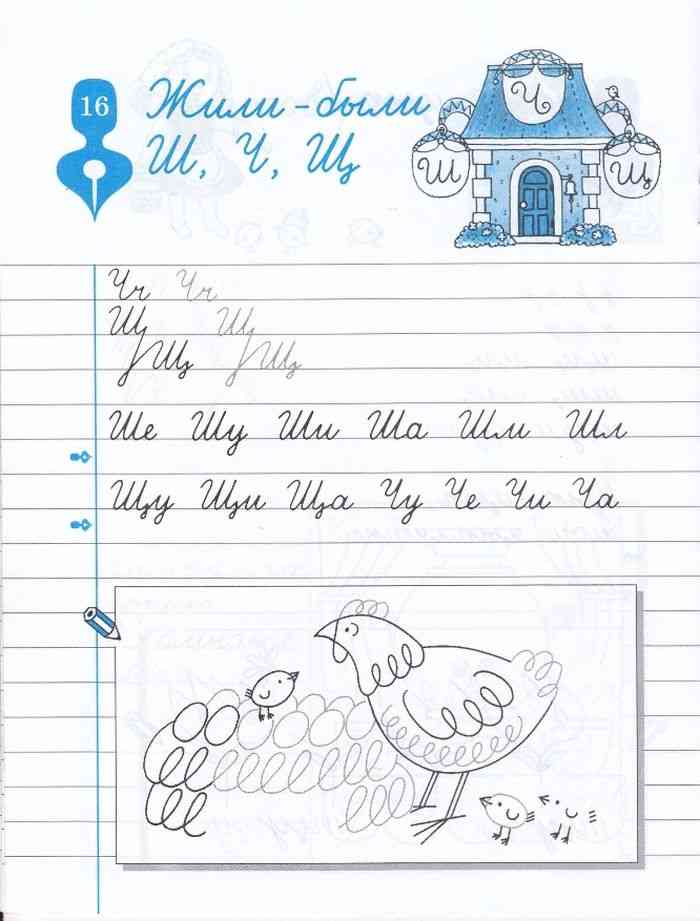 16 Жили-были
Ш, Ч, Щ
Ч
Ш Щ
Чч Чч
Щ Щ
Щ Щ
Ше Шу Ши Ша Шм Шл
Щу Щи Ща Чу Че Чи Ча